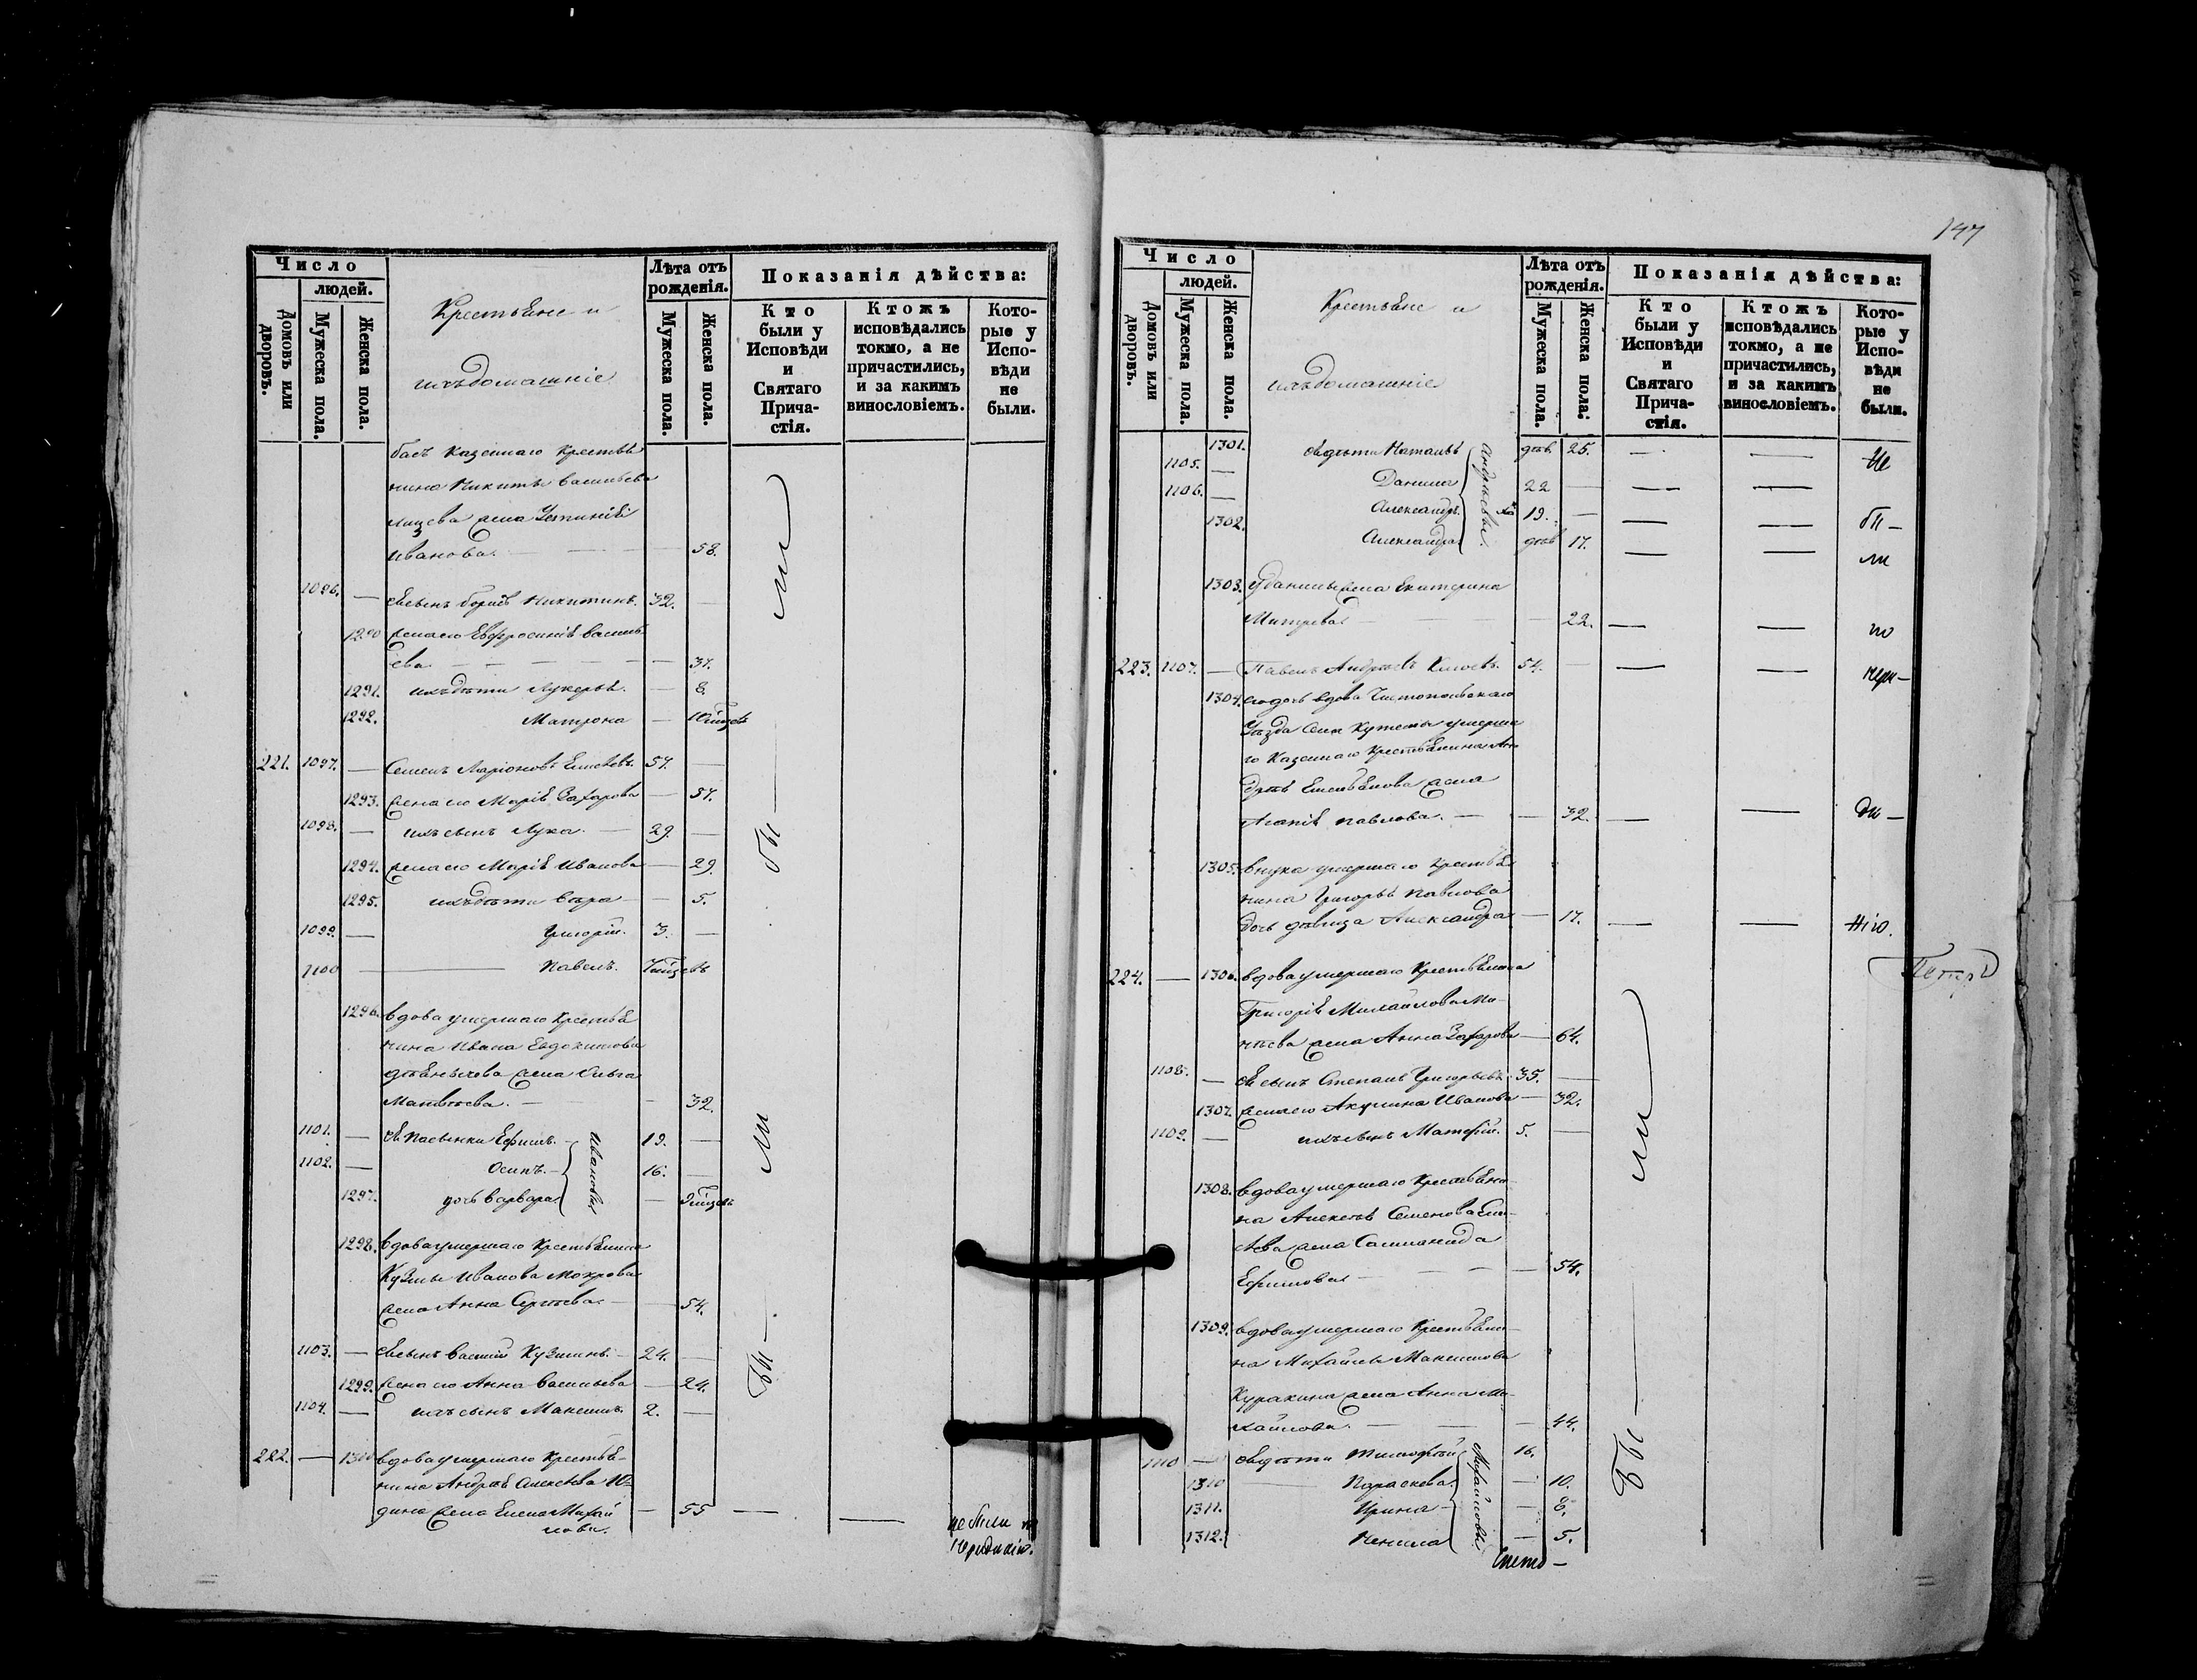 Число
людей.
Домовъ или дворовъ.
Мужеска пола.
Женска пола.
Крестьяне и
ихъ домашніе
Лѣта отъ рожденія.
Мужеска пола.
Женска пола.
Показанія дѣйства:
Кто были у Исповѣди и Святаго Причастія.
Ктожъ исповѣдались токмо, а не причастились, и за какимъ винословіемъ.
Которые у Исповѣди не были.
казеннаго крестья
нина Никиты Васильева
жена Устинія
Иванова. 58.
1096. — Ея сынъ Борисъ Никитинъ. 32. —
1290 жена его Евфросинія Василь
ева — 37.
1291. ихъ дѣти Лукерья. — 8.
1292. Матрона —
221. 1097. — Семенъ Ларіоновъ 57. —
1293. жена его Марія Захарова — 57.
1098. — ихъ сынъ Лука. — 29. —
1294. жена его Марія Иванова — 29.
1295. ихъ дѣти Вѣра — 5.
1099. — Григорій. 3. —
1100 — Павелъ.
1296. вдова умершаго крестья
нина Ивана Евдокимова
жена Ольга
Матвѣева. — 32.
1101. — Ея пасынки Ефимъ. 19. —
1102. — Осипъ. 16. —
Ивановы
1297. дочь Варвара —
1298. вдова умершаго крестьянина
Кузмы Иванова Мокрова
жена Анна Сергѣева — 54.
1103. — Ея сынъ Василій Кузминъ. 24. —
1299. жена его Анна Васильева — 24.
1104. — ихъ сынъ Максимъ. 2. —
222. — 1300 вдова умершаго крестья-
нина Андрея Алексѣева Ю-
дина жена Елена Михай — 55 — —
лова.
не были по
нерадѣнію.
бы — ли
бы — ли
147
Число
людей.
Домовъ или дворовъ.
Мужеска пола.
Женска пола.
Крестьяне и
ихъ домашніе
Лѣта отъ рожденія.
Мужеска пола.
Женска пола.
Показанія дѣйства:
Кто были у Исповѣди и Святаго Причастія.
Ктожъ исповѣдались токмо, а не причастились, и за какимъ винословіемъ.
Которые у Исповѣди не были.
1301. Ея дѣти Наталья дѣв. 25. — — Не
1105. — Данила 22 — — —
1106. — Александръ 19. — — — бы —
1302. Александра дѣв 17. — — ли
Андреевы.
1303. у Данилы жена Екатерина
Митрева — 22. — — по
223. 1107. — Павелъ Андреевъ 54. — — — нера—
1304. его дочь вдова Чистопольскаго
уѣзда села Кутемы умерша
го казеннаго крестьянина Ан
дрея Емельянова жена
Агапія Павлова. — — 32. — — дѣ —
1305. внука умершаго крестья
нина Григорья Павлова
дочь дѣвица Александра — 17. — — нію.
224. — 1306. вдова умершаго крестьянина
Григорія Михайлова Ма-
жена Анна Захарова — 64.
1108. — Ея сынъ Степанъ Григорьевъ. 35. —
1307. жена его Акулина Иванова — 32.
1109. — ихъ сынъ Матфѣй. 5. —
1308. вдова умершаго крестьяни-
на Алексѣя Семенова
жена Соломонида
Ефимова — 54.
1309. вдова умершаго крестьяни-
на Михайлы Максимова
Куракина жена Анна Ми-
хайлова. — 44.
1110 — Ея дѣти Тимофѣй 16.
1310 — Параскева — 10.
1311. Ирина — 8.
1312. Ненила — 5.
Михайловы
бы — ли
Петръ